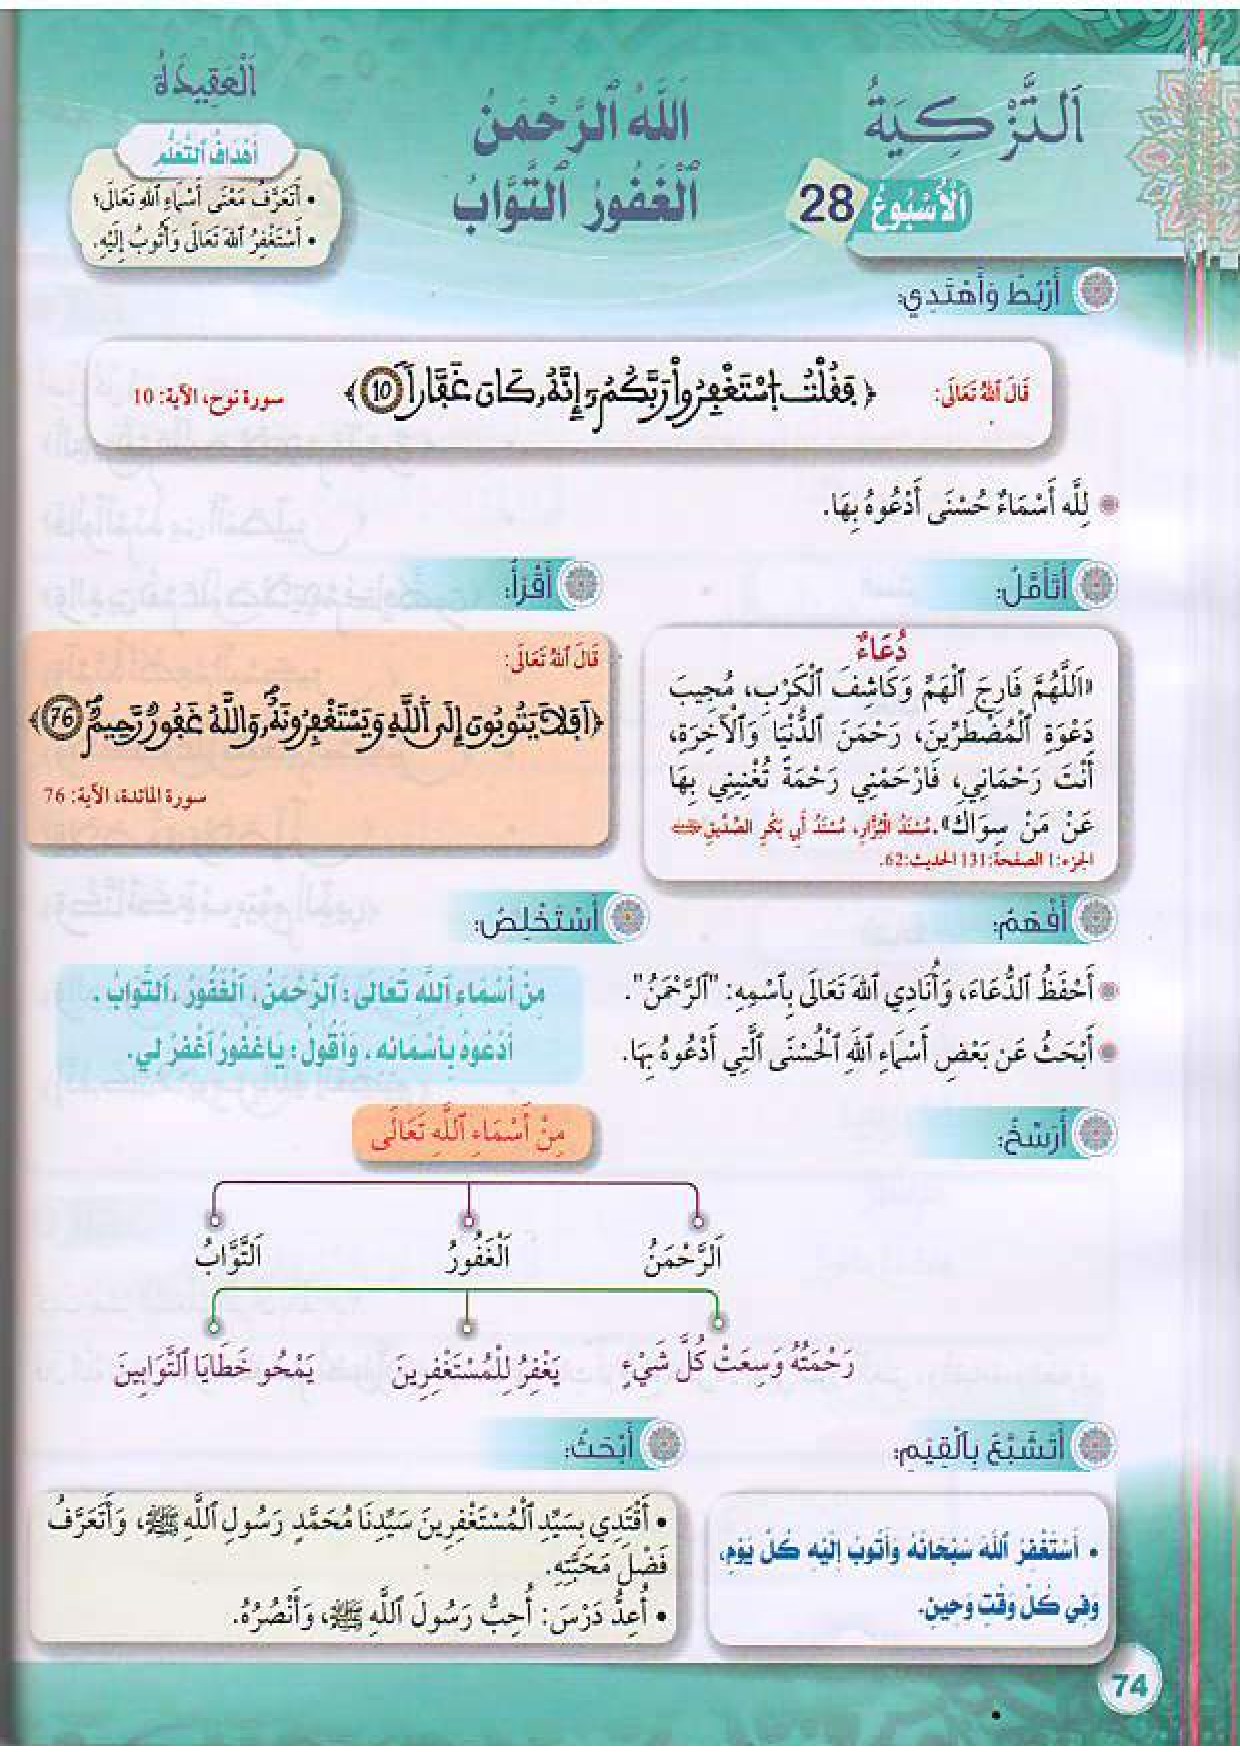 اَلتَّزْكِيَةُ
اَلْأُسْبُوعُ 28
اَللَّهُ ٱلرَّحْمَنُ
ٱلْغَفُورُ ٱلتَّوَّابُ
اَلْعَقِيدَةُ
أَهْدَافُ ٱلتَّعَلُّمِ
• أَتَعَرَّفُ مَعْنَى أَسْمَاءِ اللهِ تَعَالَى؛
• أَسْتَغْفِرُ اللهَ تَعَالَى وَأَتُوبُ إِلَيْهِ.
أَرْبُطُ وَأَهْتَدِي:
قَالَ اللهُ تَعَالَى: ﴿ فَقُلْتُ اُ۪سْتَغْفِرُواْ رَبَّكُمُۥٓ إِنَّهُۥ كَانَ غَفَّاراٗ 10 ﴾ سورة نوح، الآية: 10
لِلَّهِ أَسْمَاءٌ حُسْنَى أَدْعُوهُ بِهَا.
أَتَأَمَّلُ:
دُعَاءٌ
«اَللَّهُمَّ فَارِجَ ٱلْهَمِّ وَكَاشِفَ ٱلْكَرْبِ، مُجِيبَ
دَعْوَةِ ٱلْمُضْطَرِّينَ، رَحْمَنَ ٱلدُّنْيَا وَٱلْآخِرَةِ،
أَنْتَ رَحْمَانِي، فَارْحَمْنِي رَحْمَةً تُغْنِينِي بِهَا
عَنْ مَنْ سِوَاكَ». مُسْنَدُ الْبَزَّارِ، مُسْنَدُ أَبِي بَكْرٍ الصِّدِّيقِ
الجزء: 1 الصفحة: 131 الحديث: 62.
أَقْرَأُ:
قَالَ اللهُ تَعَالَى:
﴿اَفَلَا يَتُوبُونَ إِلَى اَللَّهِ وَيَسْتَغْفِرُونَهُۥۖ وَاللَّهُ غَفُورٞ رَّحِيمٞۖ 76﴾
سورة المائدة، الآية: 76
أَفْهَمُ:
أَحْفَظُ ٱلدُّعَاءَ، وَأُنَادِي اللهَ تَعَالَى بِٱسْمِهِ: "ٱلرَّحْمَنُ".
أَبْحَثُ عَنْ بَعْضِ أَسْمَاءِ اللهِ الْحُسْنَى ٱلَّتِي أَدْعُوهُ بِهَا.
أَسْتَخْلِصُ:
مِنْ أَسْمَاءِ ٱللَّهِ تَعَالَى: ٱلرَّحْمَنُ، ٱلْغَفُورُ، ٱلتَّوَّابُ.
أَدْعُوهُ بِأَسْمَائِهِ، وَأَقُولُ: يَاغَفُورُ ٱغْفِرْ لِي.
أُرَسِّخُ:
مِنْ أَسْمَاءِ ٱللَّهِ تَعَالَى
اَلرَّحْمَنُ
اَلْغَفُورُ
اَلتَّوَّابُ
رَحْمَتُهُ وَسِعَتْ كُلَّ شَيْءٍ
يَغْفِرُ لِلْمُسْتَغْفِرِينَ
يَمْحُو خَطَايَا ٱلتَّوَّابِينَ
أَتَشَبَّعُ بِٱلْقِيَمِ:
• أَسْتَغْفِرُ ٱللَّهَ سُبْحَانَهُ وَأَتُوبُ إِلَيْهِ كُلَّ يَوْمٍ،
وَفِي كُلِّ وَقْتٍ وَحِينٍ.
أَبْحَثُ:
• أَقْتَدِي بِسَيِّدِ ٱلْمُسْتَغْفِرِينَ سَيِّدِنَا مُحَمَّدٍ رَسُولِ ٱللَّهِ ﷺ، وَأَتَعَرَّفُ
فَضْلَ مَحَبَّتِهِ.
• أُعِدُّ دَرْسَ: أُحِبُّ رَسُولَ ٱللَّهِ ﷺ، وَأَنْصُرُهُ.
74